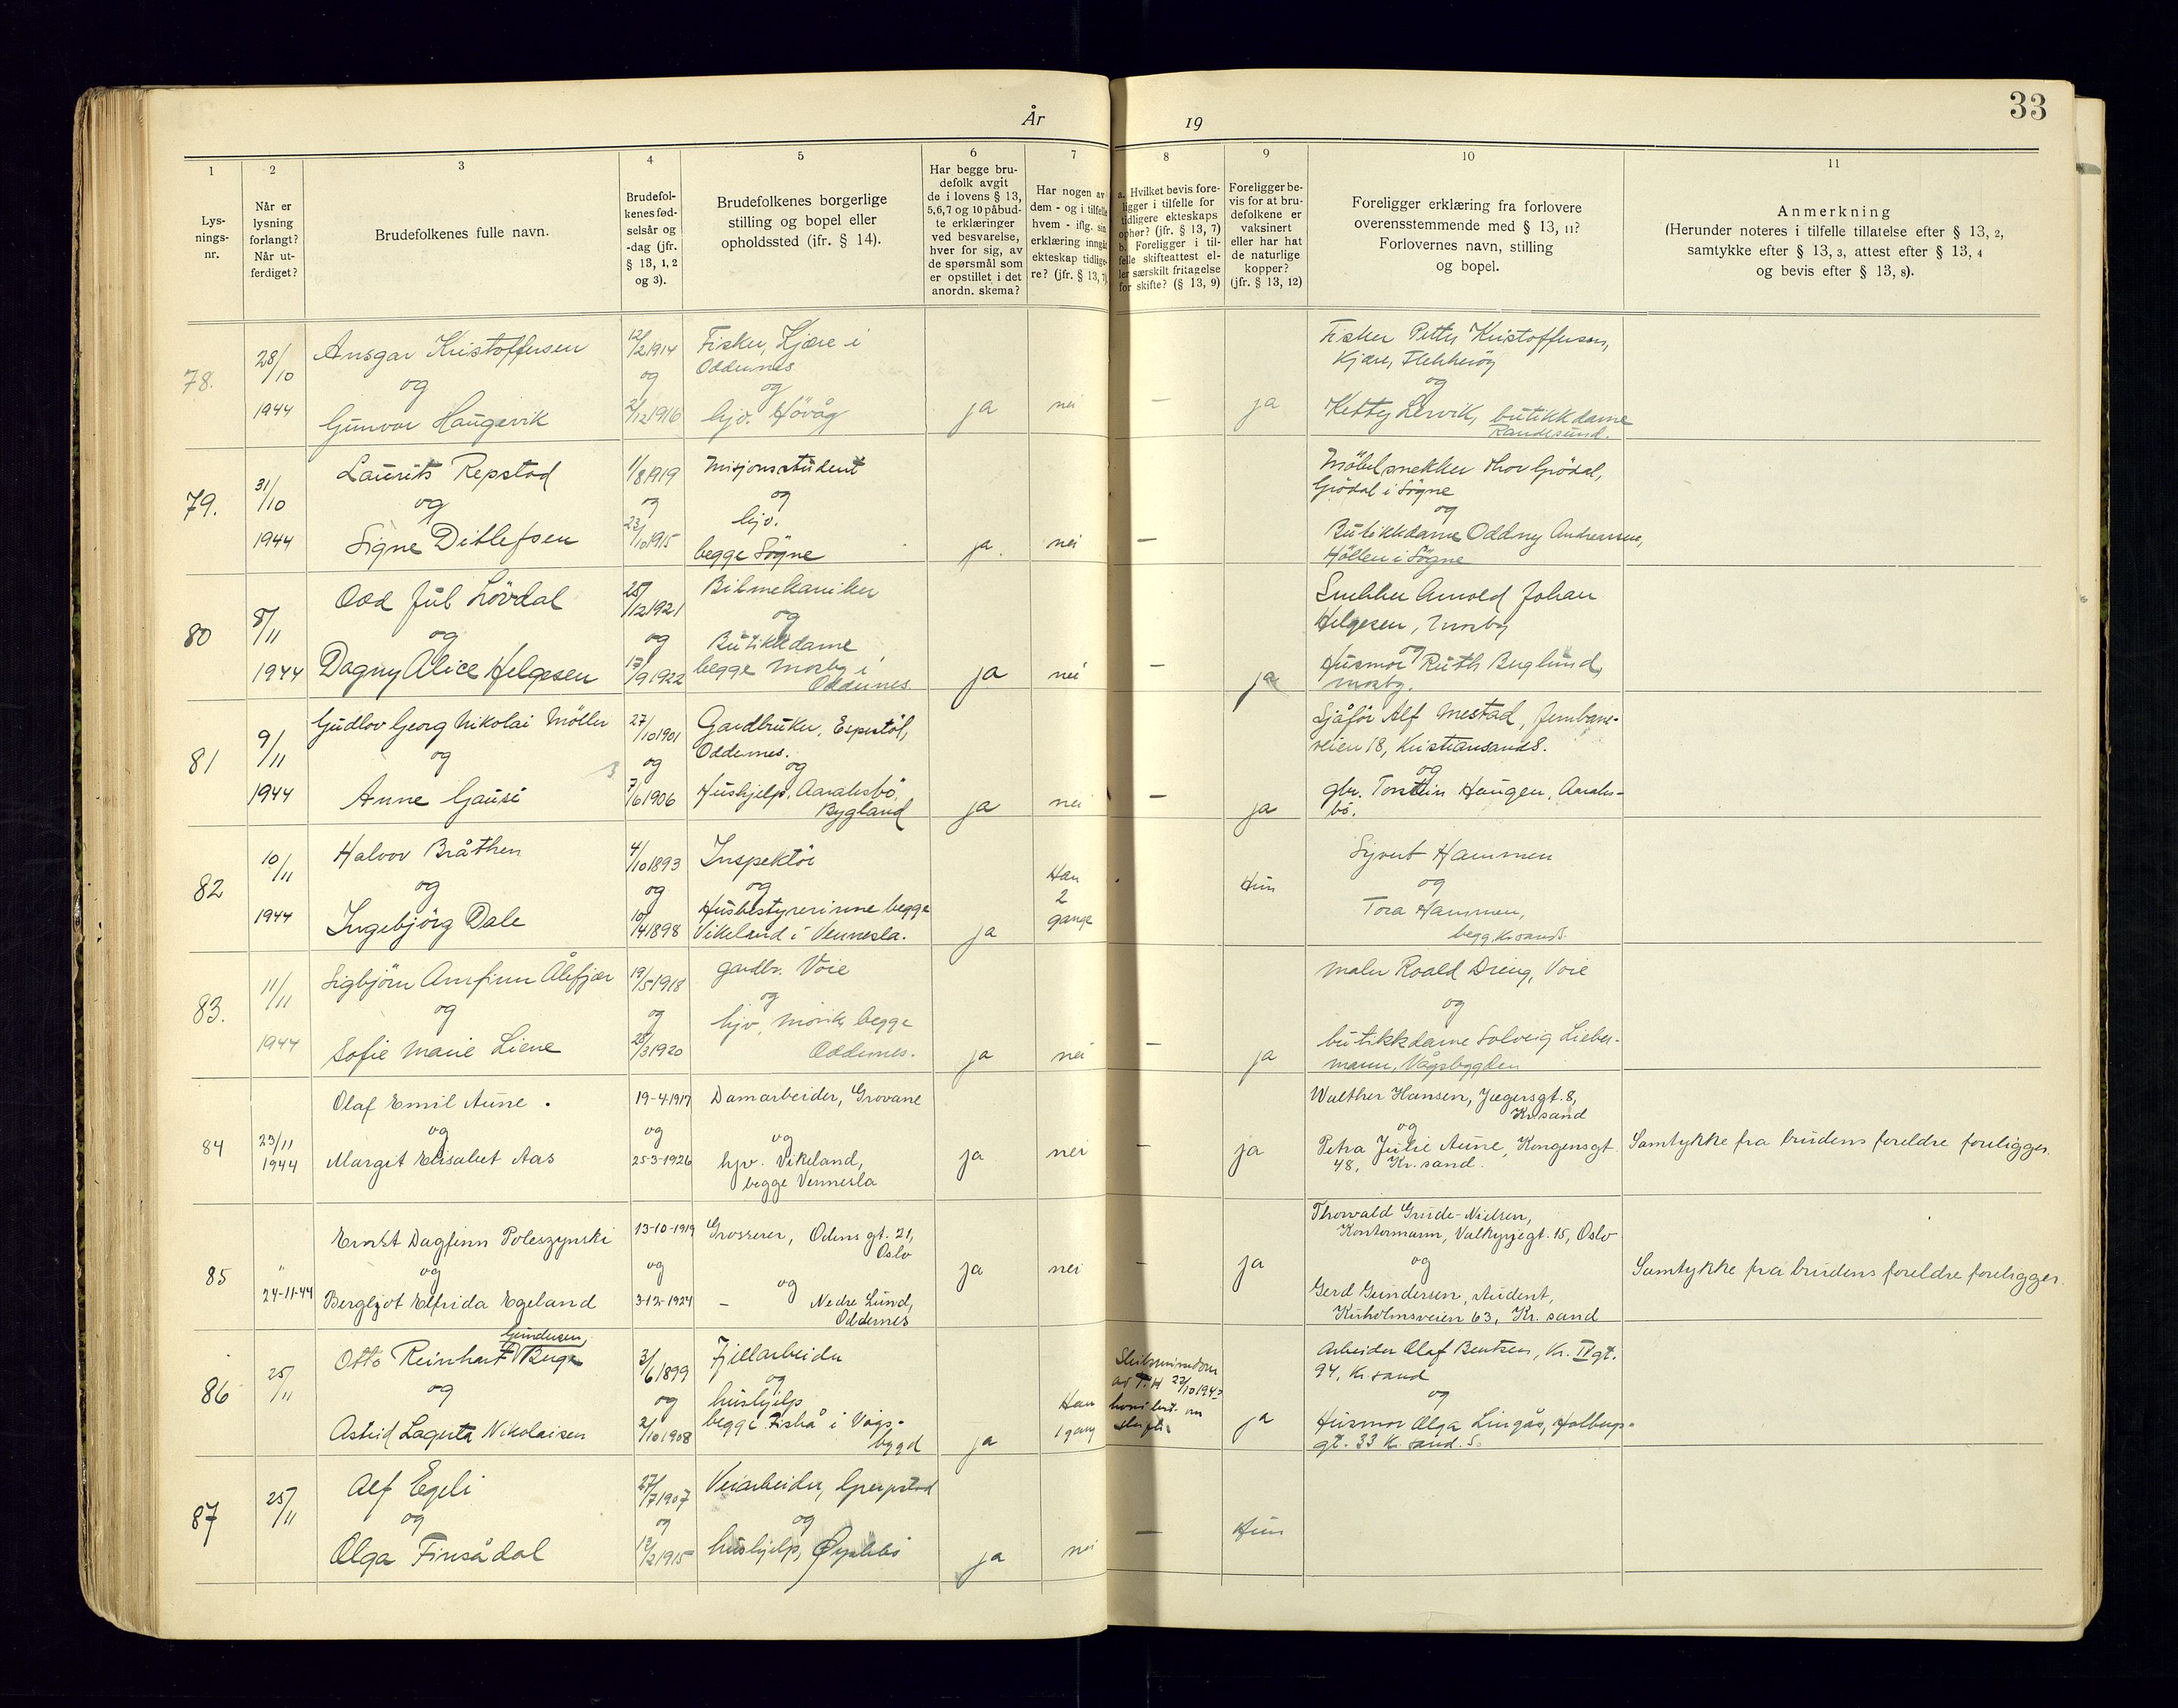 År 19
33
1
2
3
4
5
6
7
8
9
10
11
Lys-
nings-
nr.
Når er
lysning
forlangt?
Når ut-
ferdiget?
Brudefolkenes fulle navn.
Brudefol-
kenes fød-
selsår og
-dag (jfr.
§ 13, 1, 2
og 3).
Brudefolkenes borgerlige
stilling og bopel eller
opholdssted (jfr. § 14).
Har begge bru-
defolk avgit
de i lovens § 13,
5,6,7 og 10 påbud-
te erklæringer
ved besvarelse,
hver for sig, av
de spørsmål som
er opstillet i det
anordn. skema?
Har nogen av
dem - og i tilfelle
hvem - iflg. sin
erklæring inngåt
ekteskap tidlige-
re? (jfr. § 13, 7)
a. Hvilket bevis fore-
ligger i tilfelle for
tidligere ekteskaps
ophør? (jfr. § 13, 7)
b. Foreligger i til-
felle skifteattest el-
ler særskilt fritagelse
for skifte? (§ 13, 9)
Foreligger be-
vis for at bru-
defolkene er
vaksinert
eller har hat
de naturlige
kopper?
(jfr. § 13, 12)
Foreligger erklæring fra forlovere
overensstemmende med § 13, 11?
Forlovernes navn, stilling
og bopel.
Anmerkning
(Herunder noteres i tilfelle tillatelse efter § 13, 2,
samtykke efter § 13, 3, attest efter § 13, 4
og bevis efter § 13, 8).
78.
28/10
1944
Ansgar Kristoffersen
og
Gunvor Haugevik
12/2 1914
og
2/12 1916
Fisker, Kjære i
Oddernes
og
hjv. Høvåg
ja
nei
—
ja
Fisker Petter Kristoffersen,
Kjære, Flekkerøy
og
Ketty Lervik, butikkdame
Randesund.
79.
31/10
1944
Laurits Repstad
og
Signe Ditlefsen
1/8 1919
og
23/10 1915
Misjonsstudent
og
hjv.
begge Søgne
ja.
nei
—
Møbelsnekker Thor Grødal,
Grødal i Søgne
og
Butikkdame Oddny Andreassen,
Höllen i Søgne
80
8/11
1944
Odd Jul Lövdal
og
Dagny Alice Helgesen
25/12 1921
og
13/9 1922
Bilmekaniker
og
Butikkdame
begge Mosby i
Oddernes.
ja
nei
—
ja
Snekker Arnold Johan
Helgesen, Mosby
og
Husmor Ruth Berglund,
Mosby.
81
9/11
1944
Gudlov Georg Nikolai Möller
og
Anne Gausi
27/10 1901
og
7/6 1906
Gardbruker, Espestøl,
Oddernes.
og
Hushjelp, Aaraksbø,
Bygland
ja
nei
—
ja
Sjåfør Alf Mestad, Jernbane-
veien 18, Kristiansand S.
og
gbr. Torstein Haugen, Aaraks-
bø.
82
10/11
1944
Halvor Bråthen
og
Ingebjörg Dale
4/10 1893
og
10/14 1898
Inspektör
og
Husbestyrerinne begge
Vikeland i Vennesla.
ja
Han
2
gange
—
Hun
Sjvert Hammen
og
Tora Hammen,
begge Kr.sand S.
83.
11/11
1944
Sigbjörn Arnfinn Ålefjær
og
Sofie Marie Liene
19/5 1918
og
28/3 1920
gardbr. Voie
og
hjv, Morvik begge
Oddernes.
ja
nei
—
ja
Maler Roald Dreng, Voie
og
butikkdame Solveig Lieber-
mann, Vågsbygden
84
23/11
1944
Olaf Emil Aune.
og
Margit Elisabet Aas
19-4-1917
og
25-3-1926
Damarbeider, Grovane
og
hjv. Vikeland,
begge Vennesla
ja
nei
—
ja
Walther Hansen, Jægersgt. 8,
Kr.sand
og
Petra Julie Aune, Kongensgt.
48, Kr. sand.
Samtykke fra brudens foreldre foreligger.
85
"
24-11-44
Ernst Dagfinn Poleszynski
og
Bergljot Elfrida Egeland
13-10-1919
og
3-12-1924
Grosserer, Odins gt. 21,
Oslo
og
— Nedre Lund,
Oddernes
ja
nei
—
ja
Thorvald Grude-Nielsen,
Kontormann, Valkyrjegt. 15, Oslo
og
Gerd Gundersen, student,
Kuholmsveien 63, Kr. sand
Samtykke fra brudens foreldre foreligger.
86
25/11
Gundersen,
Otto Reinhart Berge
og
Astrid Laguta Nikolaisen
3/6 1899
og
2/10 1908
Fjellarbeider
og
hushjelp
begge Fiskå i Vågs-
bygd
ja
Han
1 gang
Skilsmissedom
av
ja
Arbeider Olaf Bentsen, Kr. IV gt.
94, Kr. sand
og
Husmor Olga Lingås, Holbergs-
gt. 33 Kr. sand. S.
87
25/11
Alf Egeli
og
Olga Finsådal
27/7 1907
og
12/2 1915
Veiarbeider, Greipstad
og
hushjelp, Øyslebø
ja
nei
—
Hun